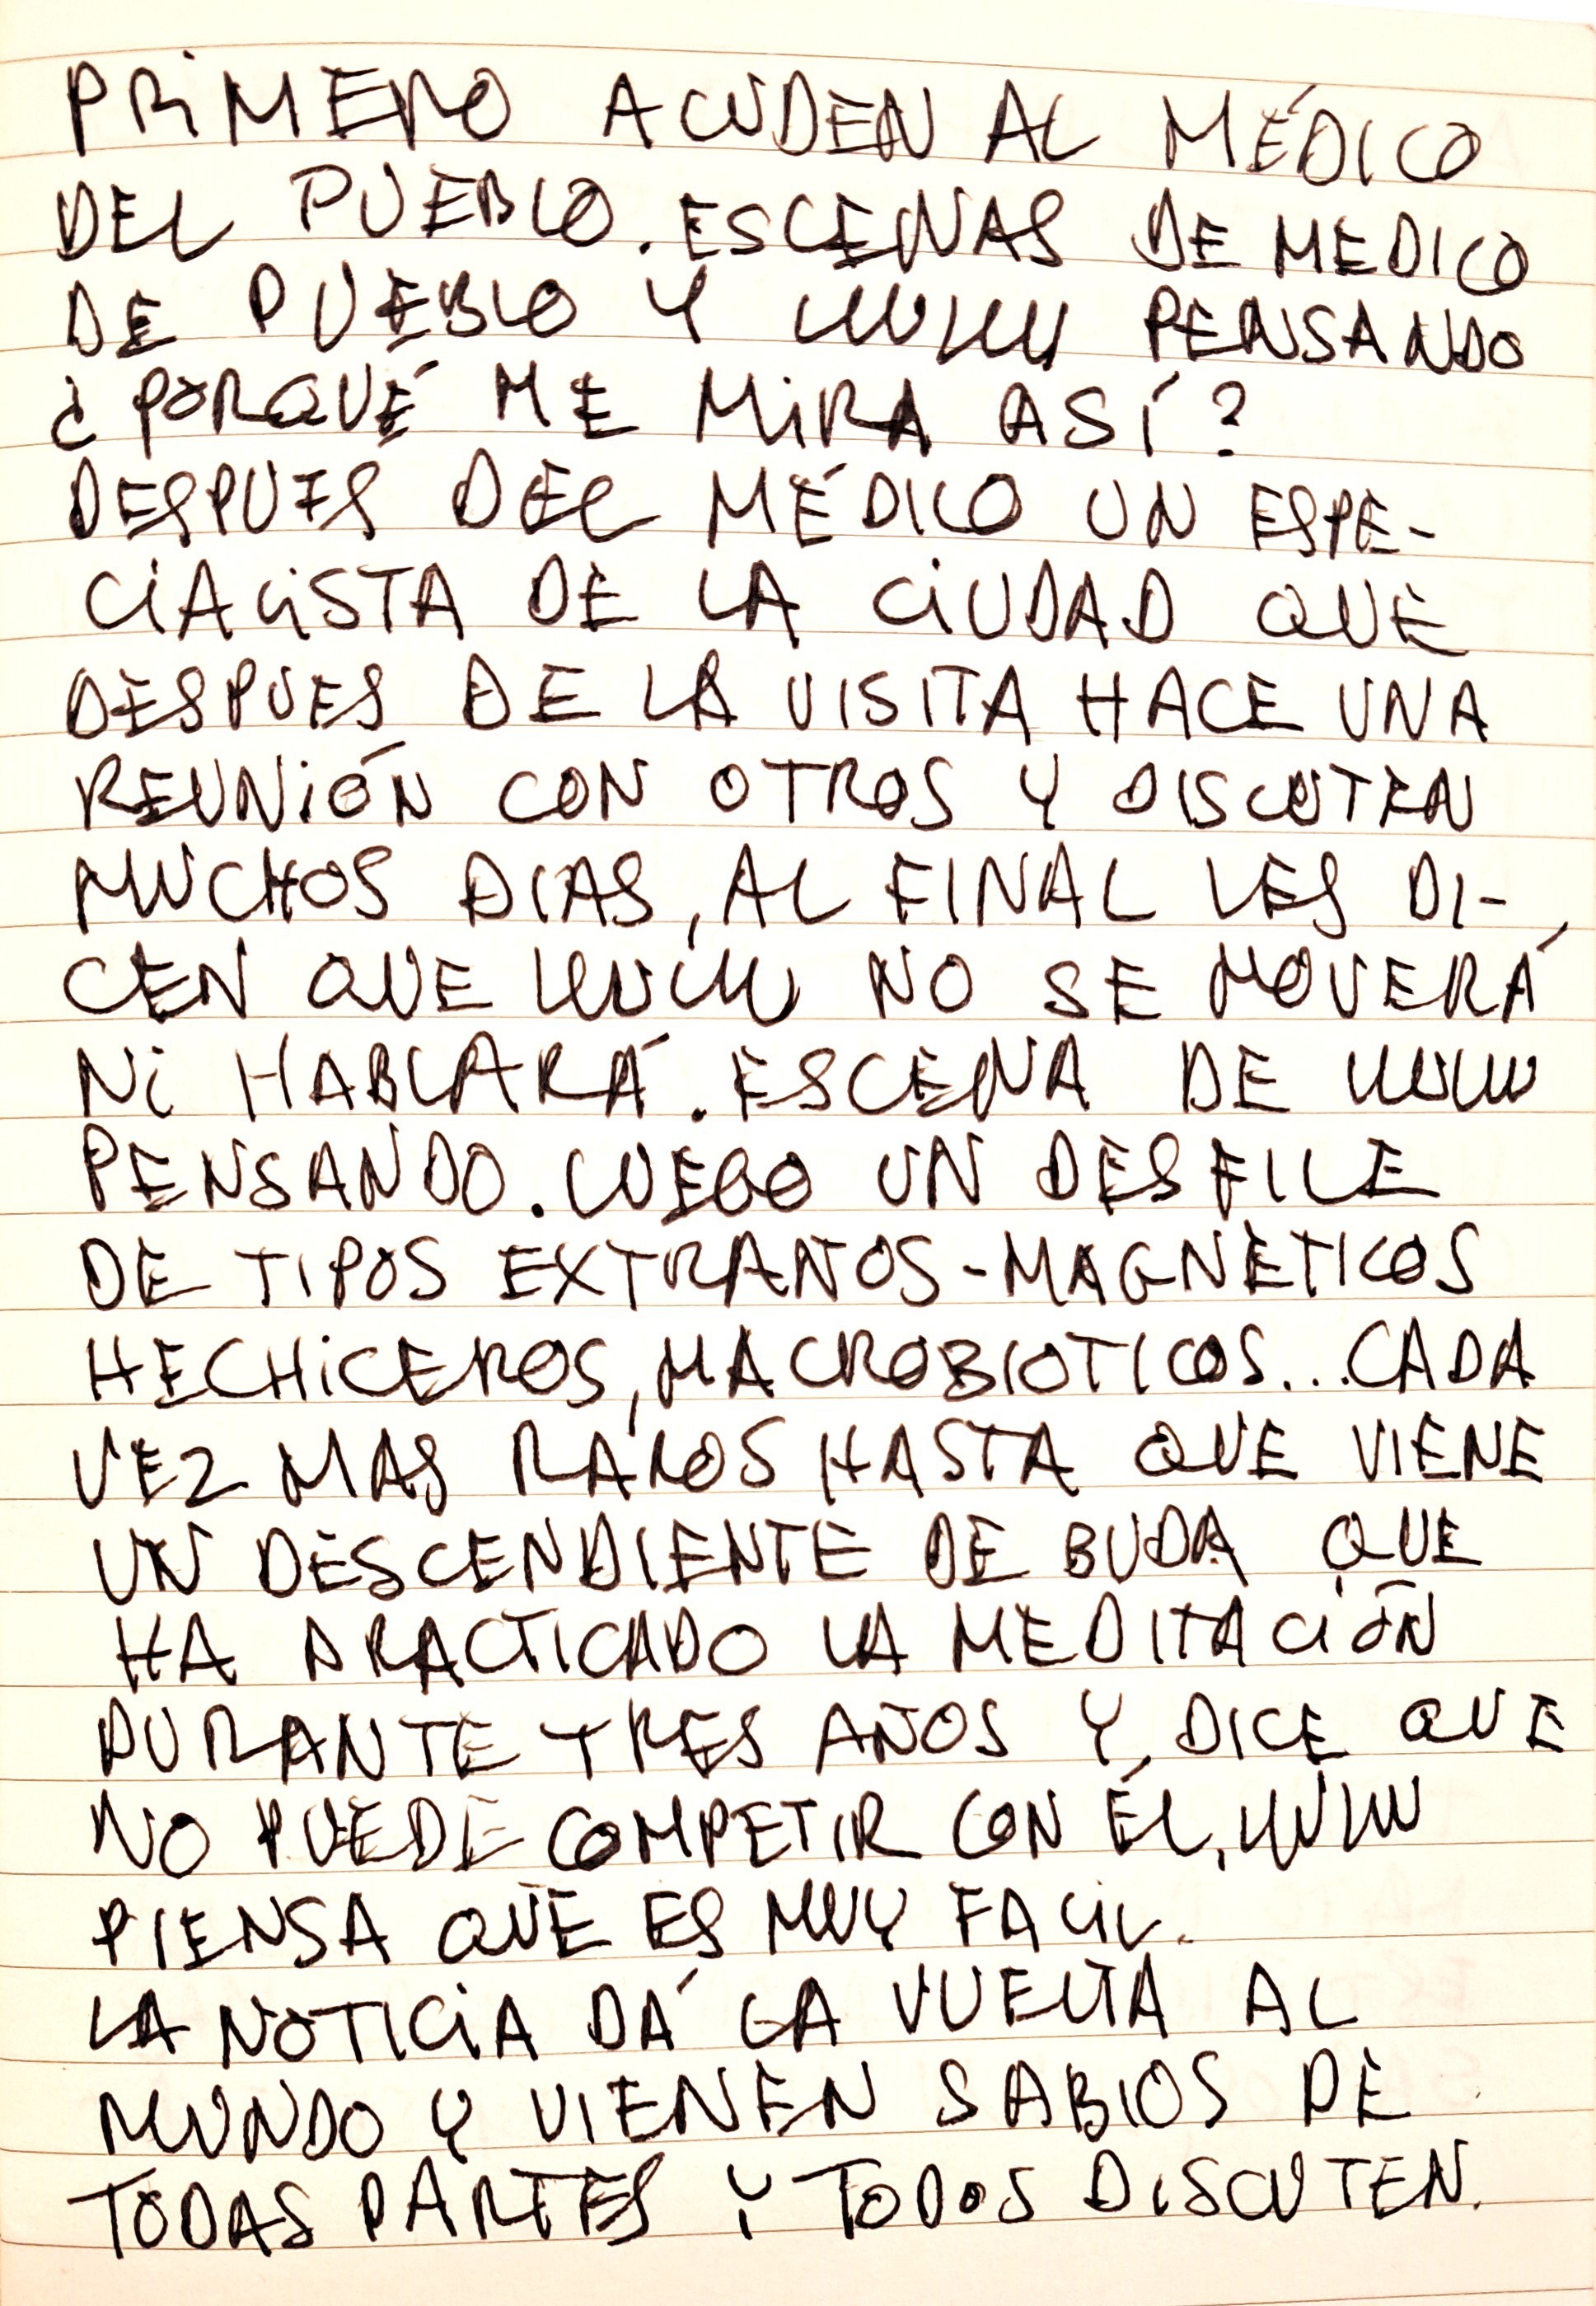 PRIMERO ACUDEN AL MÉDICO
DEL PUEBLO. ESCENAS DE MEDICO
DE PUEBLO Y LULULU PENSANDO
¿PORQUÉ ME MIRA ASÍ?
DESPUES DEL MÉDICO UN ESPE-
CIALISTA DE LA CIUDAD QUE
DESPUES DE LA VISITA HACE UNA
REUNIÓN CON OTROS Y DISCUTEN
MUCHOS DIAS, AL FINAL LES DI-
CEN QUE LULULU NO SE MOVERÁ
NI HABLARÁ. ESCENA DE LULULU
PENSANDO. LUEGO UN DESFILE
DE TIPOS EXTRAÑOS-MAGNETICOS
HECHICEROS, MACROBIOTICOS... CADA
VEZ MAS RAROS HASTA QUE VIENE
UN DESCENDIENTE DE BUDA QUE
HA PRACTICADO LA MEDITACIÓN
DURANTE TRES AÑOS Y DICE QUE
NO PUEDE COMPETIR CON ÉL, LULULU
PIENSA QUE ES MUY FACIL.
LA NOTICIA DÁ LA VUELTA AL
MUNDO Y VIENEN SABIOS DE
TODAS PARTES Y TODOS DISCUTEN.